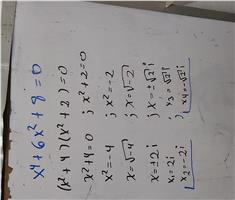 x⁴+6x²+8=0
(x²+4)(x²+2)=0
x²+4=0 ; x²+2=0
x²=-4 ; x²=-2
x=√-4 ; x=√-2
x=±2i ; x=±√2 i
x₁=2i ; x₃=√2 i
x₂=-2i ; x₄=-√2 i